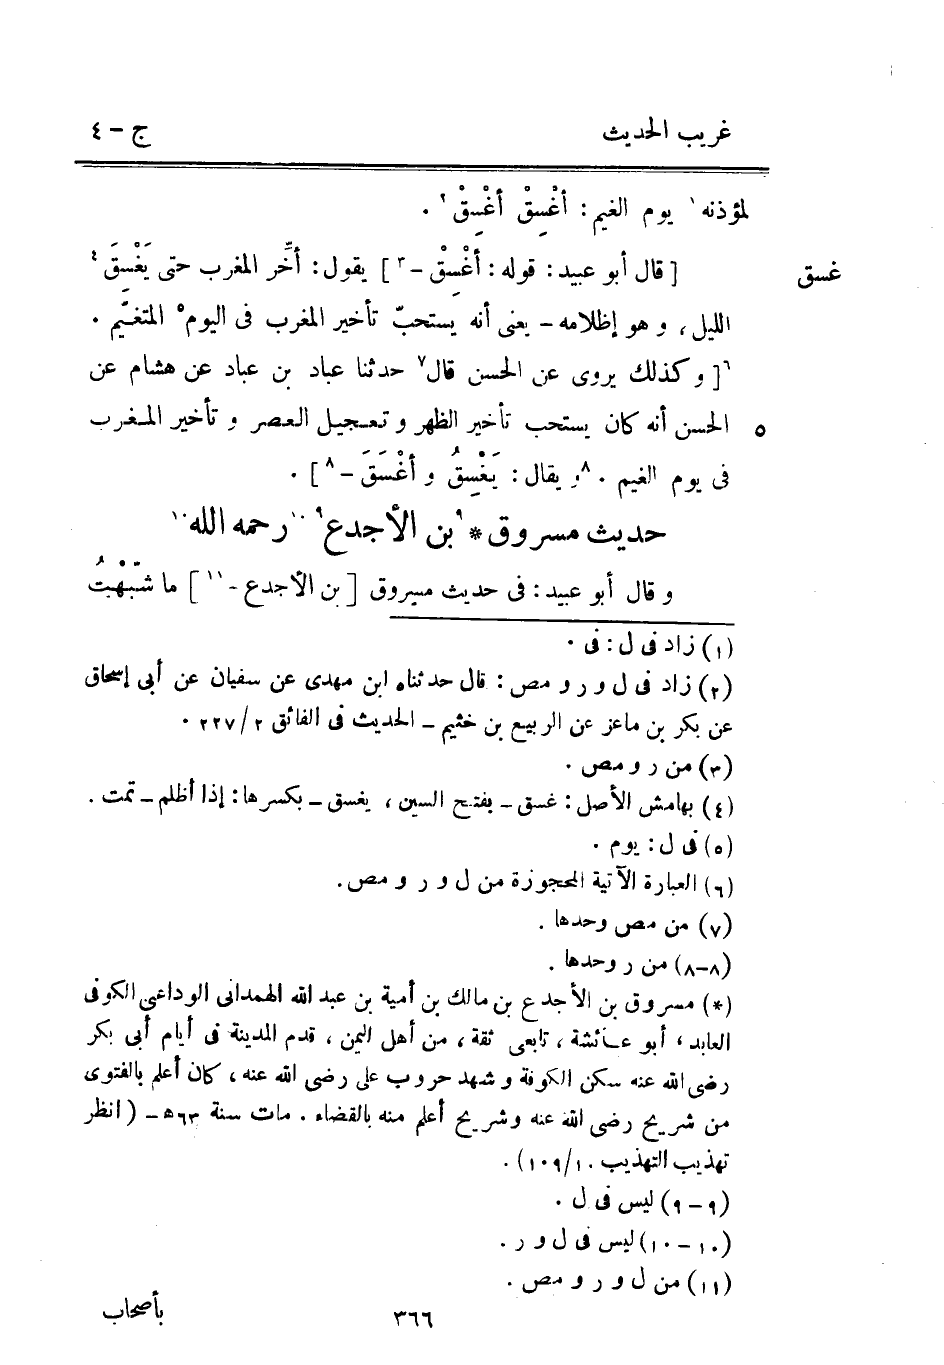 غريب الحديث ج – ٤
لمؤذنه١ يوم الغيم : أغْسِقْ أغْسِقْ٢ .
غسق [ قال أبو عبيد : قوله : أغْسِقْ –٣ ] يقول : أخِّر المغرب حتى يَغْسِقَ٤
الليل ، و هو إظلامه – يعنى أنه يستحبّ تأخير المغرب فى اليوم٥ المتغيِّم .
٦[ و كذلك يروى عن الحسن قال٧ حدثنا عباد بن عباد عن هشام عن
٥ الحسن أنه كان يستحب تأخير الظهر و تعجيل العصر و تأخير المغرب
فى يوم الغيم . ٨و يقال : يَغْسِقُ و أغْسَقَ –٨ ] .
حديث مسروق * ٩بن الأجدع٩ ١٠رحمه الله١٠
و قال أبو عبيد : فى حديث مسروق [ بن الأجدع –١١ ] ما شَبَّهْتُ
(١) زاد فى ل : فى .
(٢) زاد فى ل و ر و مص : قال حدثناه ابن مهدى عن سفيان عن أبى إسحاق
عن بكر بن ماعز عن الربيع بن خثيم – الحديث فى الفائق ٢/ ٢٢٧ .
(٣) من ر و مص .
(٤) بهامش الأصل : غسق – بفتح السين ، يغسق – بكسرها : إذا أظلم – تمت .
(٥) فى ل : يوم .
(٦) العبارة الآتية المحجوزة من ل و ر و مص .
(٧) من مص وحدها .
(٨–٨) من ر وحدها .
(*) مسروق بن الأجدع بن مالك بن أمية بن عبد الله الهمدانى الوداعى الكوفى
العابد ، أبو عائشة ، تابعى ثقة ، من أهل اليمن ، قدم المدينة فى أيام أبى بكر
رضى الله عنه سكن الكوفة و شهد حروب على رضى الله عنه ، كان أعلم بالفتوى
من شريح رضى الله عنه وشريح أعلم منه بالقضاء . مات سنة ٦٣ ه – ( انظر
تهذيب التهذيب ١٠/ ١٠٩) .
(٩ – ٩) ليس فى ل .
(١٠ – ١٠) ليس فى ل و ر .
(١١) من ل و ر و مص .
٣٦٦ بأصحاب